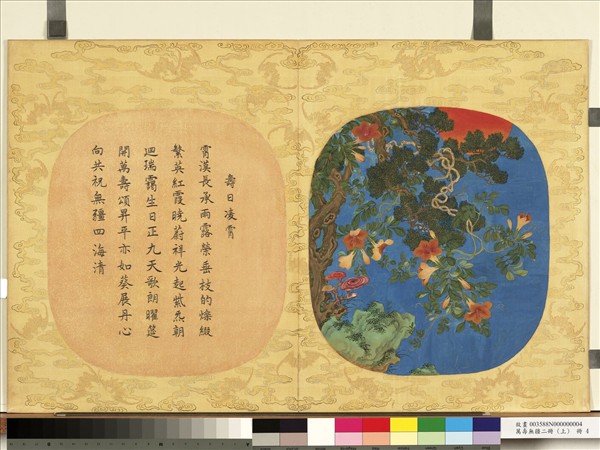 壽日凌霄
霄漢長承雨露榮垂枝的爍綴
繁英紅霞曉蔚祥光起紫炁朝
迴瑞靄生日正九天歌朗曜筵
開萬壽頌昇平亦如葵展丹心
向共祝無疆四海清
故畫 003588N000000004
萬壽無疆二冊(上) 冊